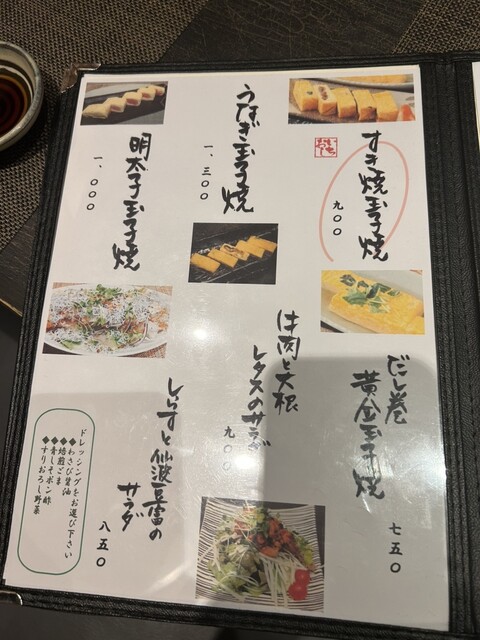 すき焼玉子焼
九〇〇
いち
おし
うなぎ玉子焼
一、三〇〇
明太子玉子焼
一、〇〇〇
だし巻
黄金玉子焼
七五〇
肉と大根
レタスのサラダ
九〇〇
しらすと仙波豆富の
サラダ
八五〇
ドレッシングをお選び下さい
◆わさび醤油
◆焙煎ごま
◆青しそポン酢
◆すりおろし野菜